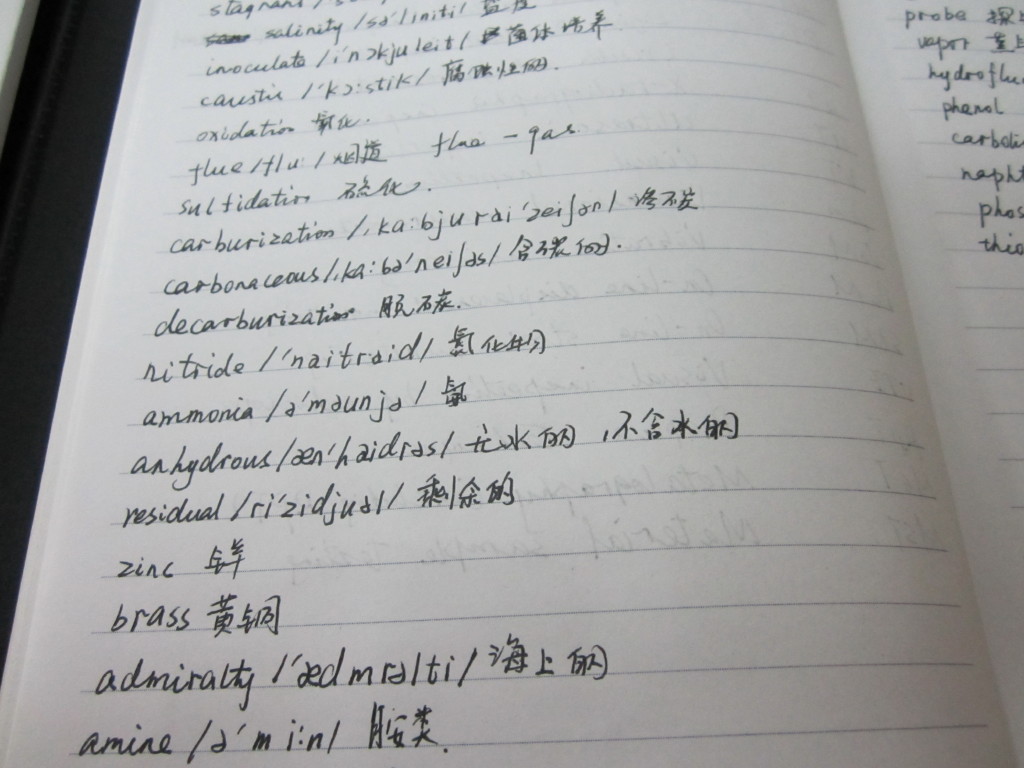 stagnant /
salinity /sə'liniti/ 盐度
inoculate /i'nɔkjuleit/ 菌体培养
caustic /'kɔ:stik/ 腐蚀性的.
oxidation 氧化.
flue /flu:/ 烟道 flue - gas.
sulfidation 硫化.
carburization /,ka:bjurai'zeiʃən/ 渗碳
carbonaceous /,ka:bə'neiʃəs/ 含碳的.
decarburization 脱碳.
nitride /'naitraid/ 氮化物
ammonia /ə'məunjə/ 氨
anhydrous /æn'haidrəs/ 无水的,不含水的
residual /ri'zidjuəl/ 剩余的
zinc 锌
brass 黄铜
admiralty /'ædmrəlti/ 海上的
amine /ə'mi:n/ 胺类.
probe
vapor
hydrofluo
phenol
carboli
napht
phos
thio